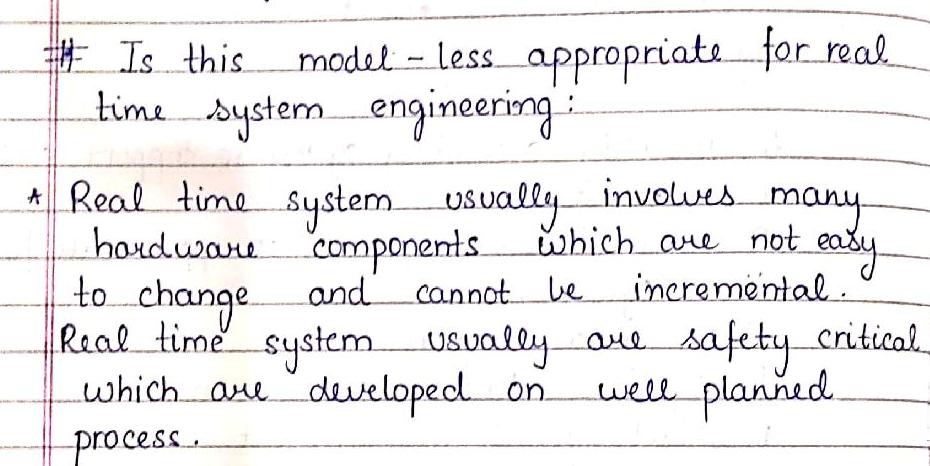 # Is this model - less appropriate for real
time system engineering :
* Real time system usually involves many
hardware components which are not easy
to change and cannot be incremental.
Real time system usually are safety critical
which are developed on well planned
process.